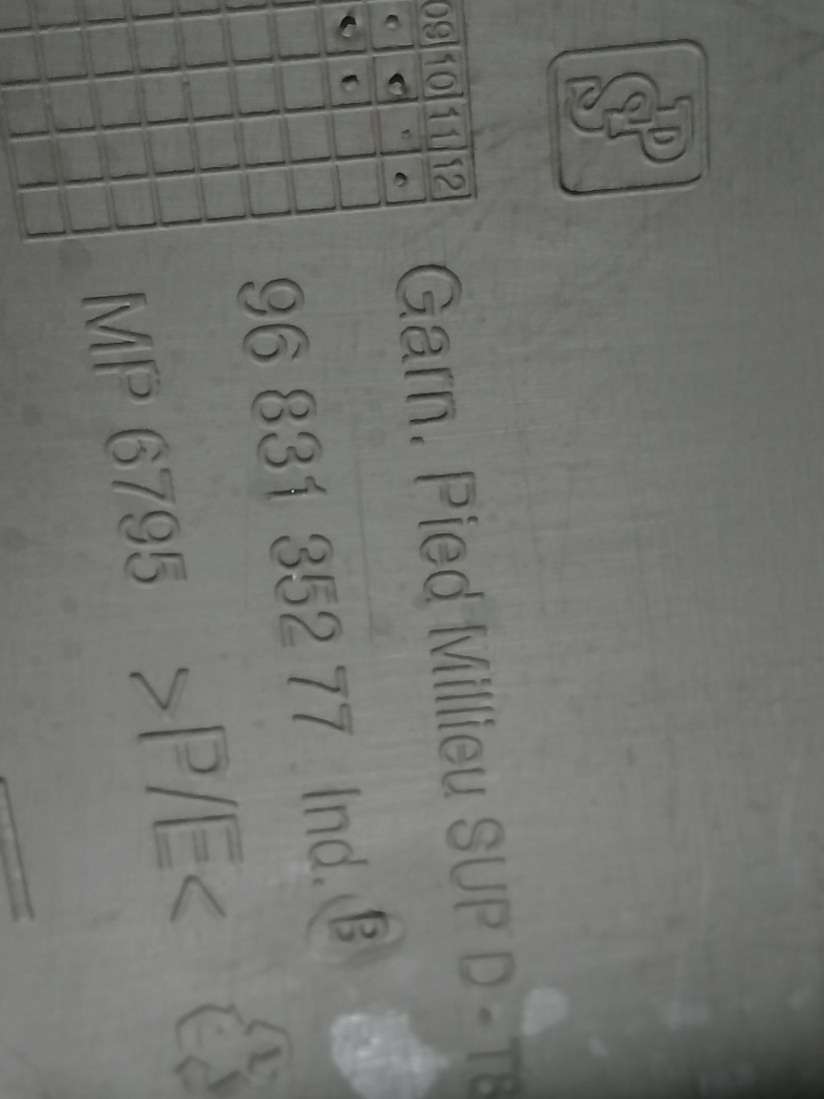 PSA
09 10 11 12
Garn. Pied Milieu SUP D - T8
96 831 352 77 Ind. B
MP 6795 >P/E<